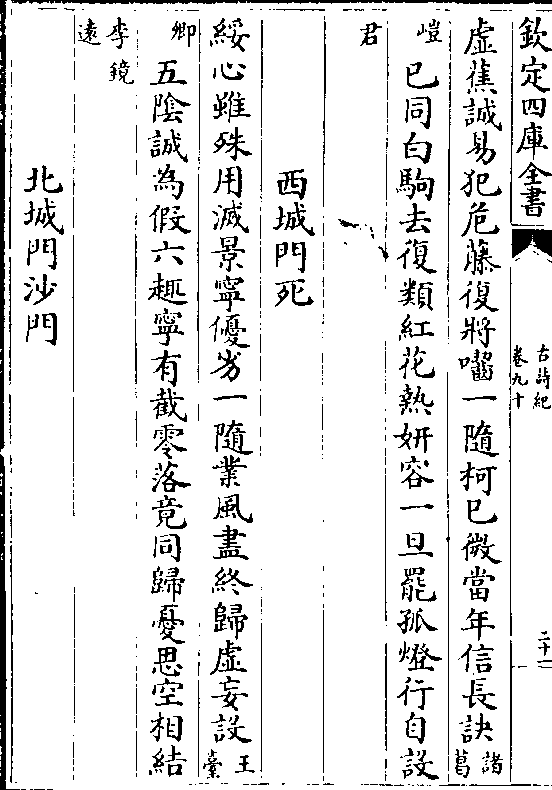 欽定四庫全書
古詩紀
卷九十
二十一
虛蕉誠易犯危藤復將囓一隨柯已微當年信長訣諸葛
嵦
已同白駒去復類紅花熱妍容一旦罷孤燈行自設
君
西城門死
綏心雖殊用滅景寧優劣一隨業風盡終歸虛妄設王臺
卿
五陰誠為假六趣寧有截零落竟同歸憂思空相結
李鏡
遠
北城門沙門